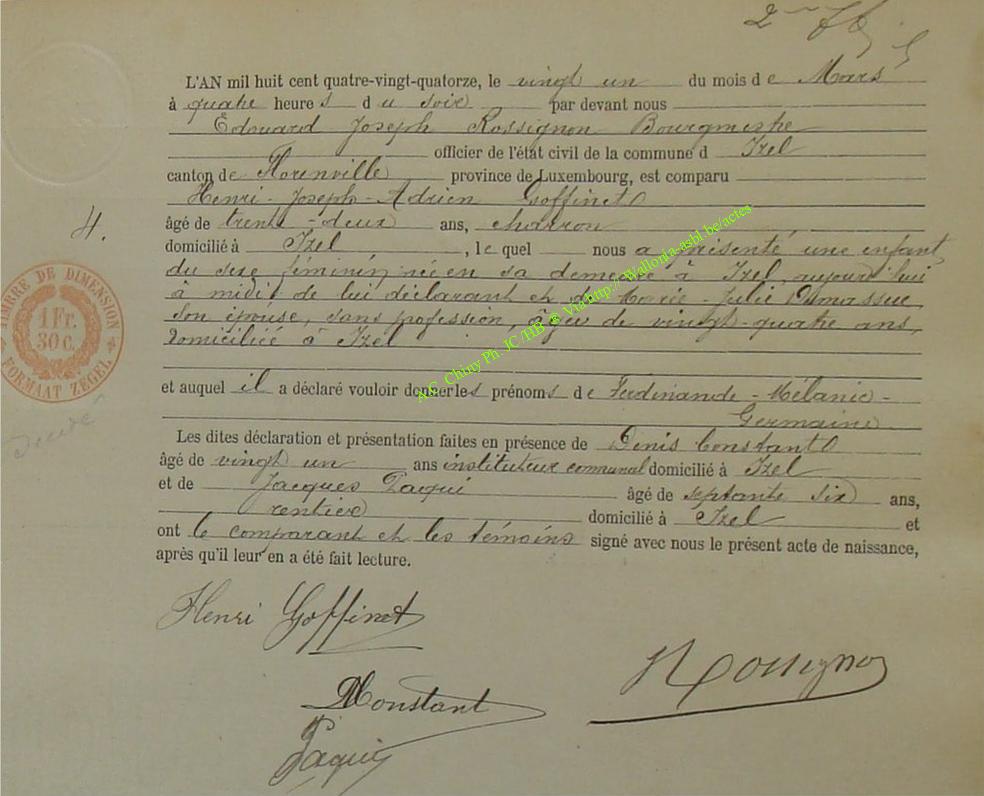 2
L'AN mil huit cent quatre-vingt-quatorze, le vingt un du mois de Mars
à quatre heures du soir par devant nous
Edouard Joseph Rossignon Bourgmestre
officier de l'état civil de la commune d Izel
canton de Florenville province de Luxembourg, est comparu
Henri-Joseph-Adrien Goffinet
4.
âgé de trente-deux ans, charron
domicilié à Izel, lequel nous a présenté une enfant
du sexe féminin, née en sa demeure à Izel, aujourd'hui
à midi, de lui déclarant et de Marie-Julie
son épouse, sans profession, âgée de vingt-quatre ans,
domiciliée à Izel
TIMBRE DE DIMENSION
1 Fr.
30 C.
FORMAAT ZEGEL
et auquel il a déclaré vouloir donner les prénoms de Ferdinande-Mélanie-
Germaine
Les dites déclaration et présentation faites en présence de Denis Constant
âgé de vingt un ans instituteur communal domicilié à Izel
et de Jacques Paqui âgé de septante six ans,
rentier domicilié à Izel et
ont le comparant et les témoins signé avec nous le présent acte de naissance,
après qu'il leur en a été fait lecture.
Henri Goffinet
Rossignon
DConstant
Paqui
A.G. Chiny Ph. JC /HB ® Via http://Wallonia-asbl.be/actes